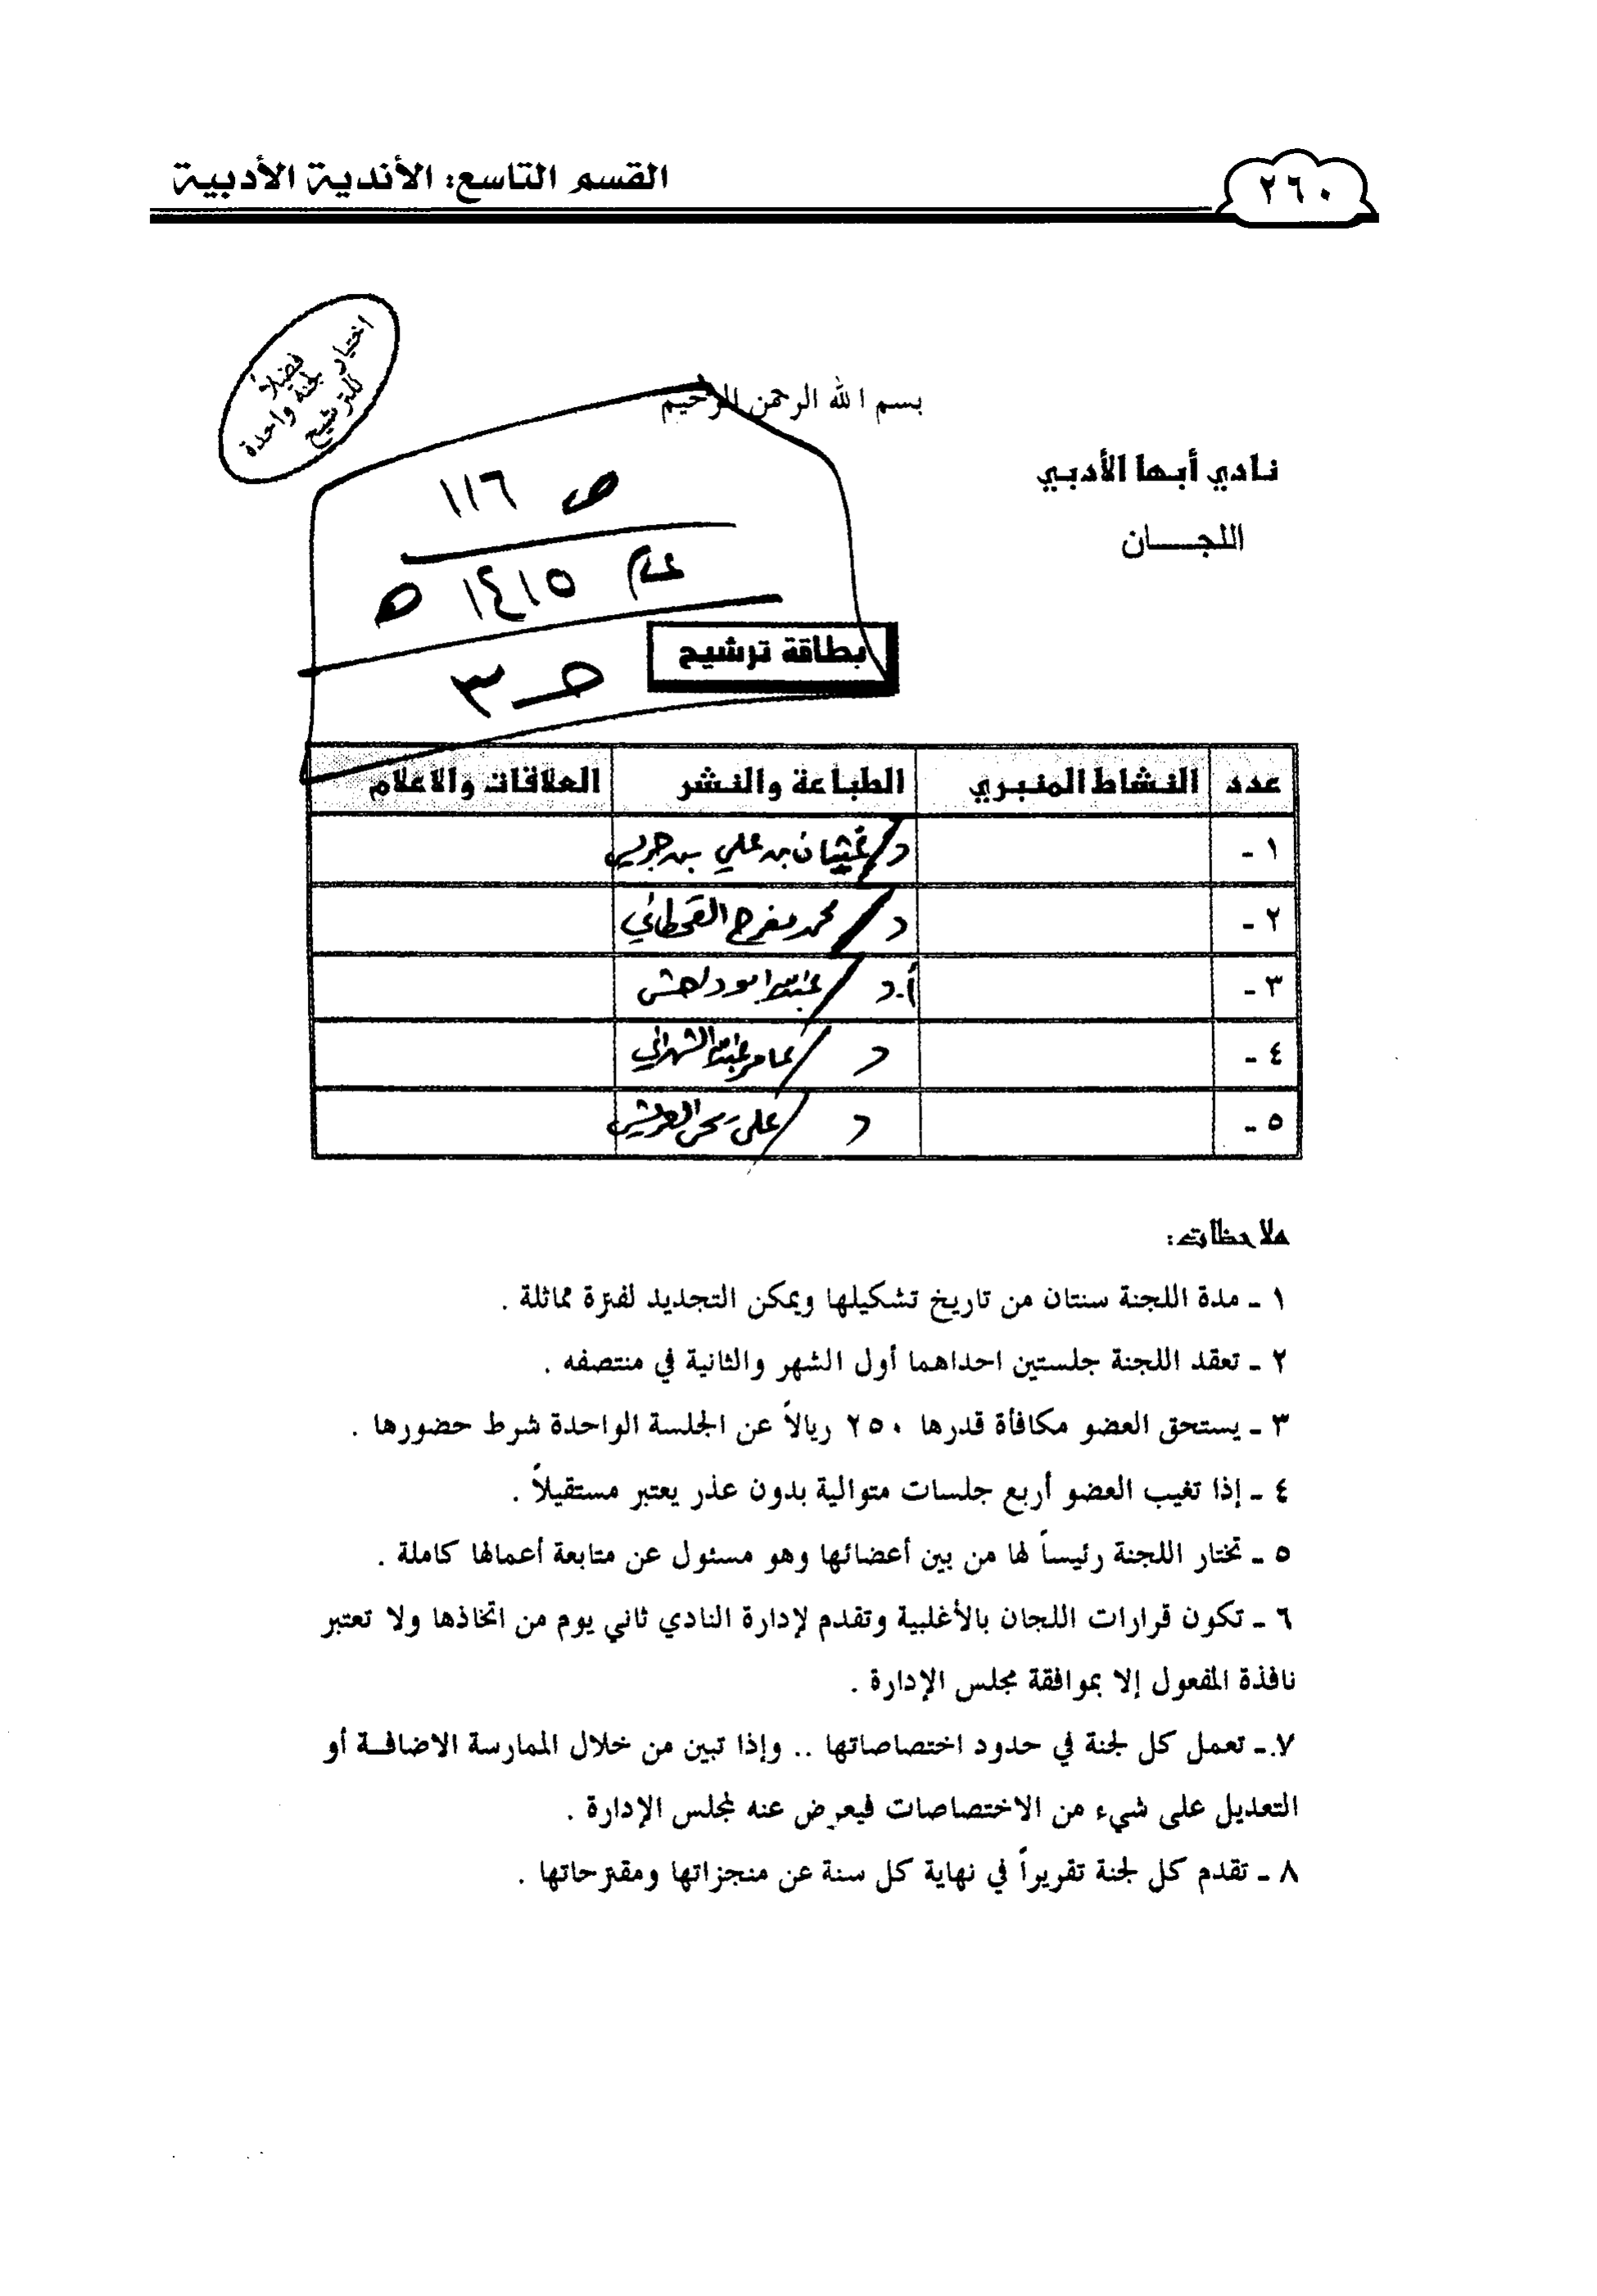 ٢٦٠
القسم التاسع: الأندية الأدبية
فضلاً
اختيار لجنة واحدة
للترشيح
بسم الله الرحمن الرحيم
نادي أبها الأدبي
اللجــــان
ص ١١٦
عام ١٤١٥ ه
حـ ٣
بطاقة ترشيح
عدد النشاط المنبري الطباعة والنشر العلاقات والاعلام
١ - د/ بن علي بن جريس
٢ - د/ محمد مفرح القحطاني
٣ - أ.د/ عبدالله
٤ - د/ عامر عبدالله الشهراني
٥ - د/ علي
ملاحظات:
١ - مدة اللجنة سنتان من تاريخ تشكيلها ويمكن التجديد لفترة مماثلة .
٢ - تعقد اللجنة جلستين احداهما أول الشهر والثانية في منتصفه .
٣ - يستحق العضو مكافأة قدرها ٢٥٠ ريالاً عن الجلسة الواحدة شرط حضورها .
٤ - إذا تغيب العضو أربع جلسات متوالية بدون عذر يعتبر مستقيلاً .
٥ - تختار اللجنة رئيساً لها من بين أعضائها وهو مسئول عن متابعة أعمالها كاملة .
٦ - تكون قرارات اللجان بالأغلبية وتقدم لإدارة النادي ثاني يوم من اتخاذها ولا تعتبر
نافذة المفعول إلا بموافقة مجلس الإدارة .
٧ - تعمل كل لجنة في حدود اختصاصاتها .. وإذا تبين من خلال الممارسة الاضافة أو
التعديل على شيء من الاختصاصات فيعرض عنه لمجلس الإدارة .
٨ - تقدم كل لجنة تقريراً في نهاية كل سنة عن منجزاتها ومقترحاتها .